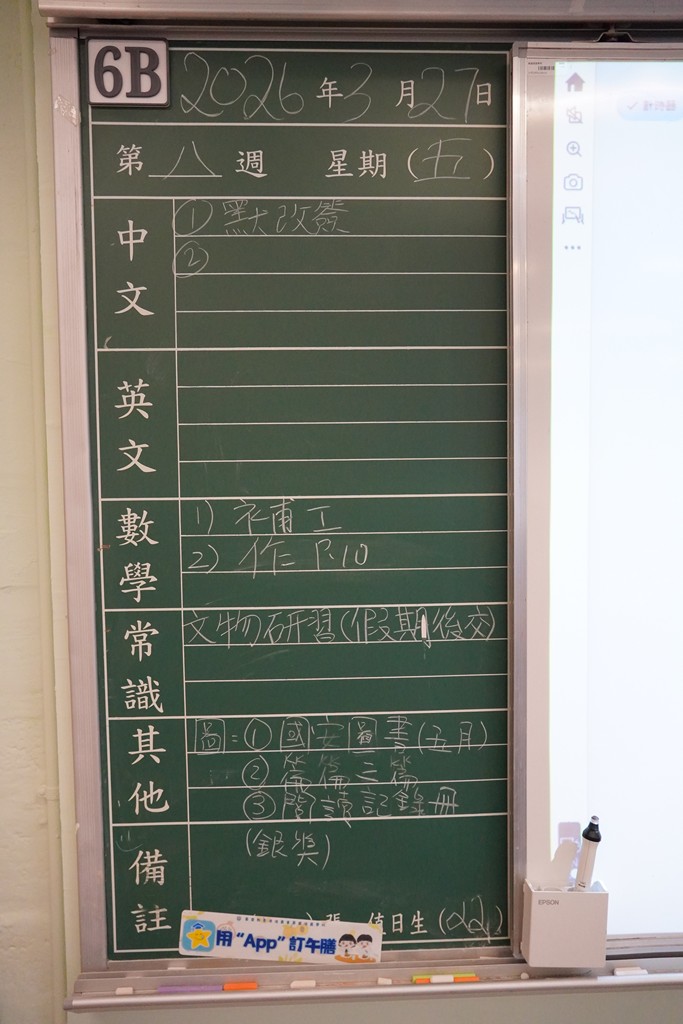 6B
2026年3月27日
第八週 星期(五)
中文
① 默改簽
②
英文
數學
1) 補工
2) 作 P.10
常識
文物研習(假期後交)
其他
圖:① 國安圖書(五月)
②
③ 閱讀記錄冊
備註
(銀獎)
值日生
用“App”訂午膳
EPSON